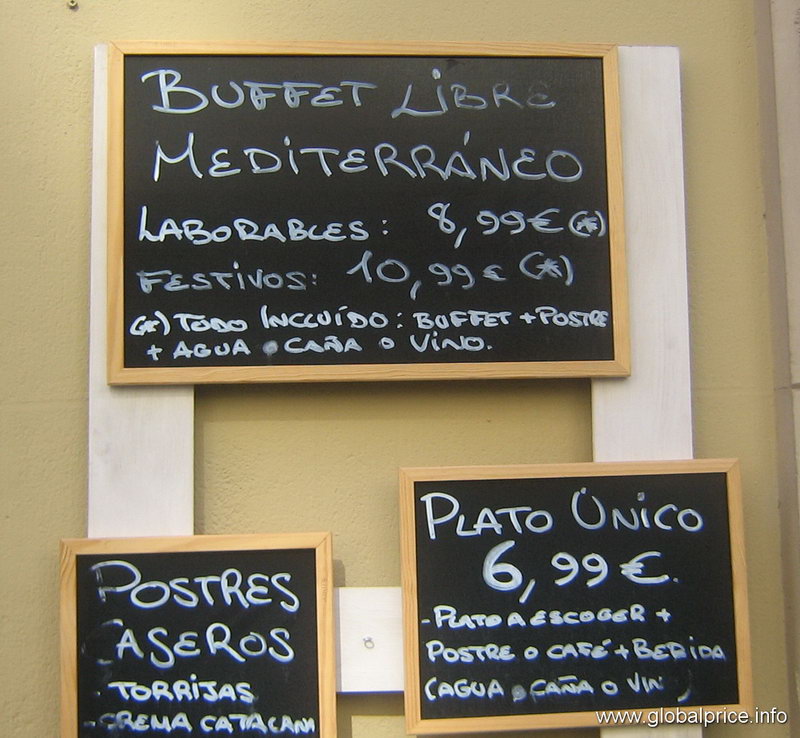 BUFFET LIBRE
MEDITERRÁNEO
LABORABLES: 8,99€ (*)
FESTIVOS: 10,99€ (*)
(*) TODO INCLUÍDO: BUFFET + POSTRE
+ AGUA o CAÑA o VINO.
POSTRES
CASEROS
- TORRIJAS
- CREMA CATALANA
PLATO ÚNICO
6,99€.
- PLATO A ESCOGER +
POSTRE O CAFÉ + BEBIDA
(AGUA o CAÑA O VINO)
www.globalprice.info